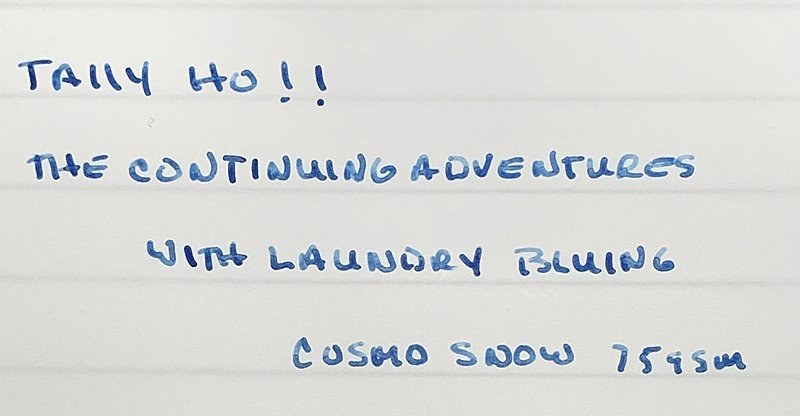 TALLY HO!!
THE CONTINUING ADVENTURES
WITH LAUNDRY BLUING
COSMO SNOW 75gsm